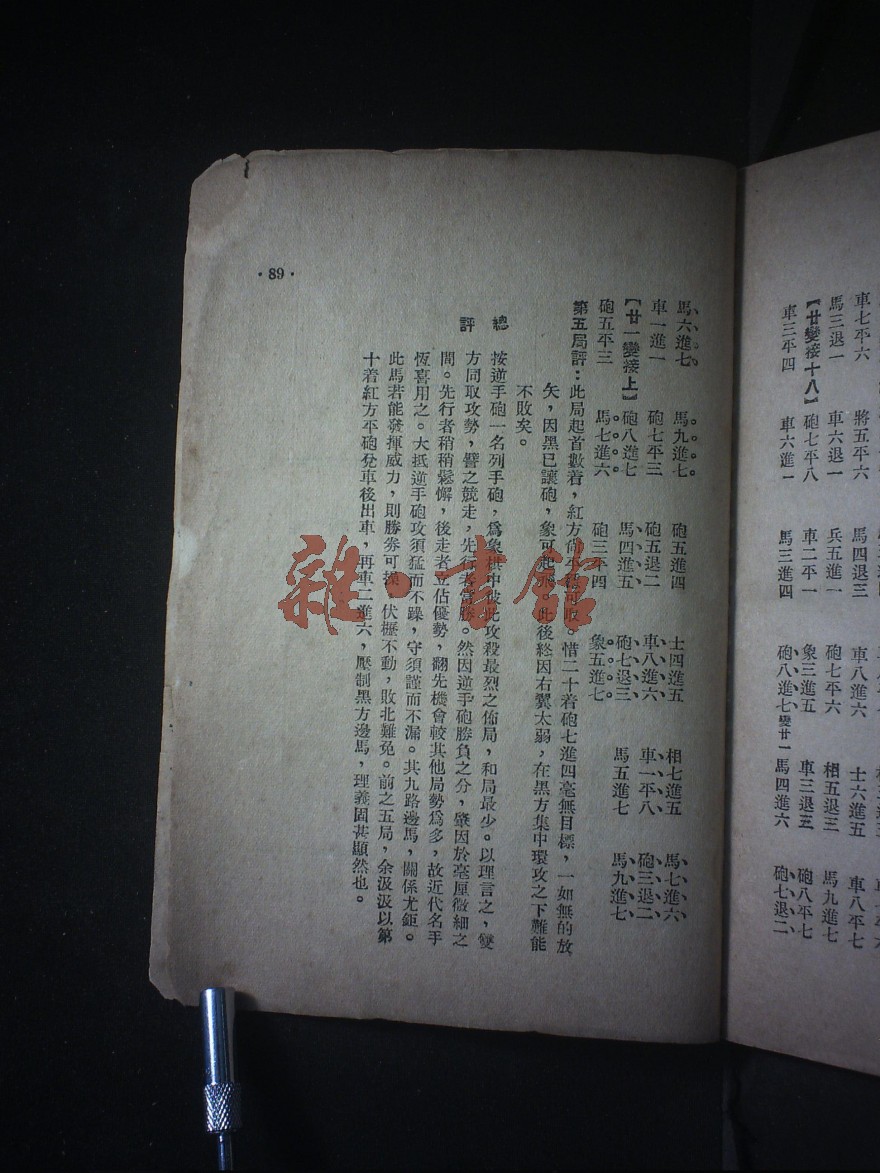 車七平六
馬三退一 將五平六
【廿變接十八】 車六退一 馬四退三 車八進六
車三平四 砲七平八 兵五進一 砲七平六 士六進五 車八平七
車六進一 車二平一 象三進五 相五退三 馬九進七
馬三進四 砲八進七變廿一 車三退三 砲八平七
馬四進六 砲七退二
馬六進七 馬九進七 砲五進四 士四進五 相七進五 馬七進六
車一進一 砲七平三 砲五退二 車八進六 車一平八 砲三退二
【廿一變接上】 砲八進七 馬四進五 砲七退三 馬五進七 馬九進七
砲五平三 馬七進六 砲三平四 象五進七
第五局評：此局起首數着，紅方尚平穩可取。惜二十着砲七進四毫無目標，一如無的放
矢，因黑已讓砲，象可起飛，此後終因右翼太弱，在黑方集中環攻之下難能
不敗矣。
總評
按逆手砲一名列手砲，爲象棋中彼此攻殺最烈之佈局，和局最少。以理言之，雙
方同取攻勢，譬之競走，先行者常勝。然因逆手砲勝負之分，肇因於毫厘微細之
間。先行者稍稍鬆懈，後走者立佔優勢，翻先機會較其他局勢爲多，故近代名手
恆喜用之。大抵逆手砲攻須猛而不躁，守須謹而不漏。其九路邊馬，關係尤鉅。
此馬若能發揮威力，則勝券可操，伏櫪不動，敗北難免。前之五局，余汲汲以第
十着紅方平砲兌車後出車，再車二進六，壓制黑方邊馬，理義固甚顯然也。
·89·
雜·書館